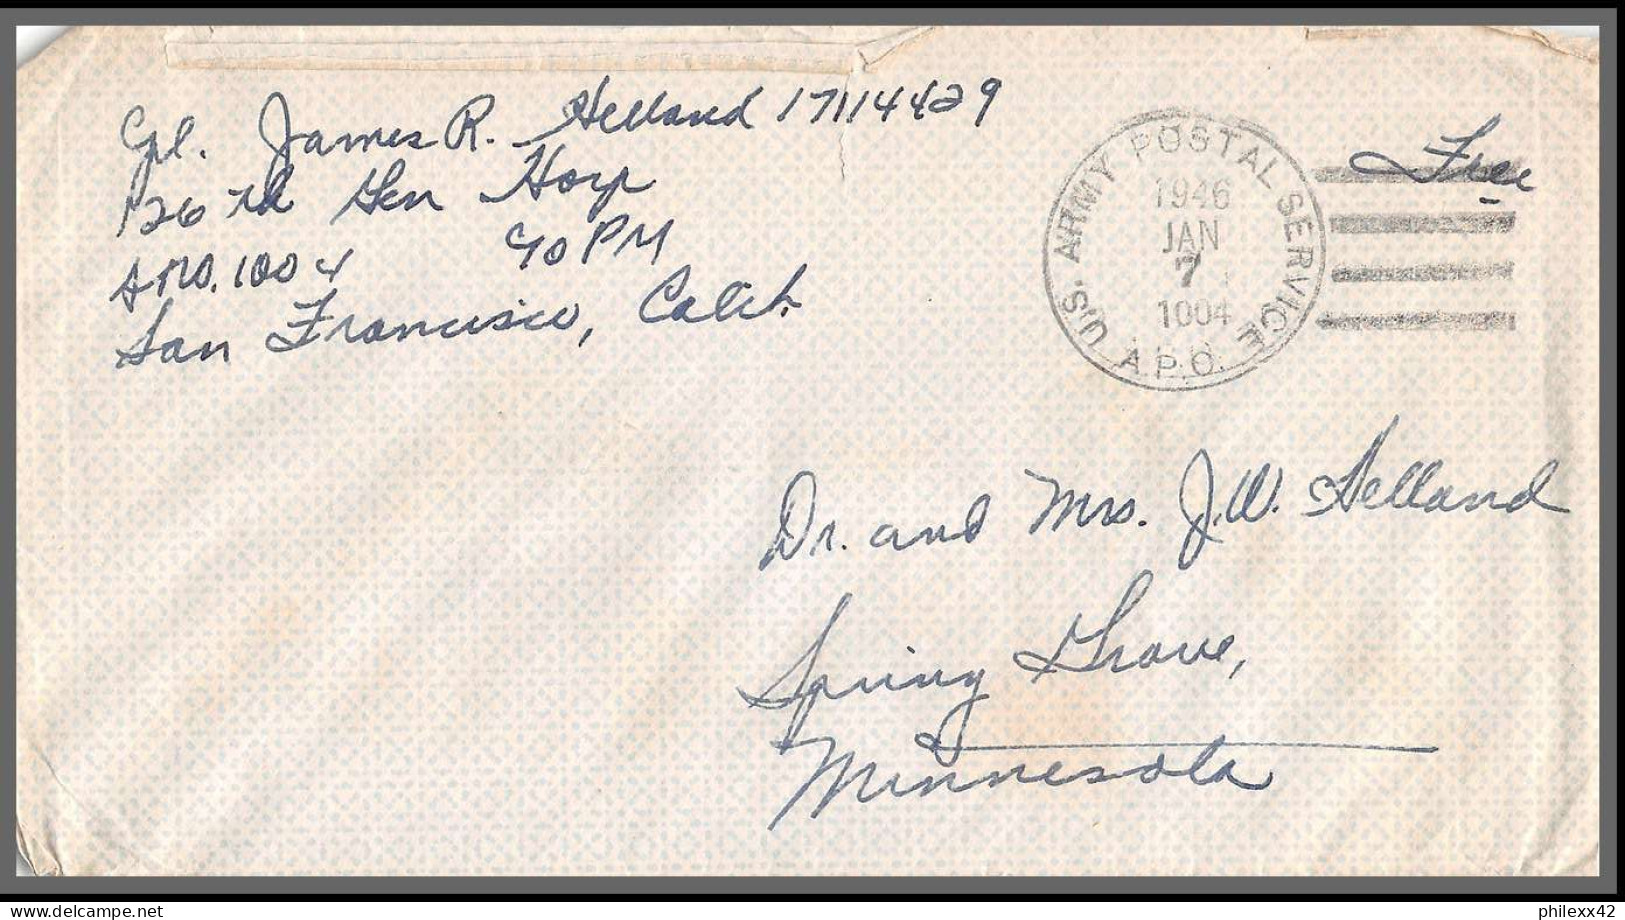 Cpl. James R. Helland 17114429
126 th Gen Hosp
A.P.O. 1004 c/o PM
San Francisco, Calif.
Free
U.S. ARMY POSTAL SERVICE
1946
JAN
7
1004
A.P.O.
Dr. and Mrs. J.W. Helland
Spring Grove,
Minnesota
delcampe.net
philexx42